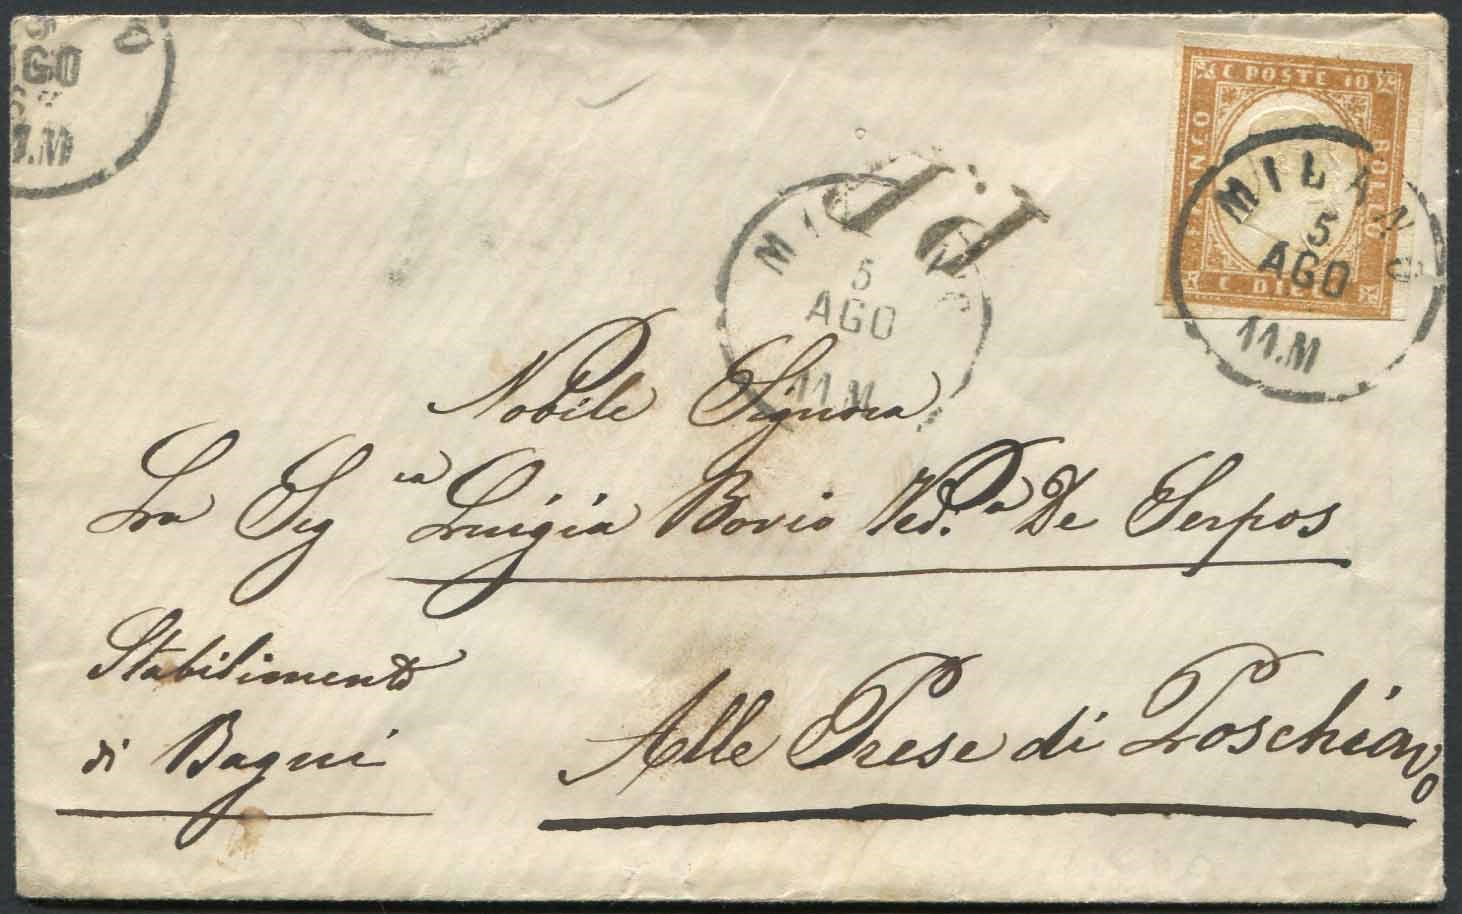 C POSTE 10
FRANCO
BOLLO
C DIECI
MILANO
5
AGO
11.M
P.P.
MILANO
5
AGO
11.M
5
AGO
6
1.M
O
Nobile Signora
La Sig ra Luigia Bovio Ved.a De Serpos
Stabilimento
di Bagni
Alle Prese di Poschiavo